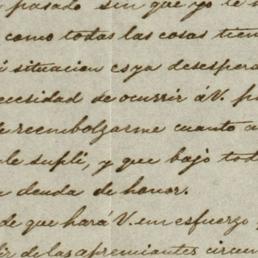 pasado sin que yo le
como todas las cosas tien
situacion es ya desespera
cesidad de ocurrir á V. p
reembolzarme cuanto a
le supli, y que bajo tod
deuda de honor.
de que hará V. un esfuerzo
de las apremiantes circun